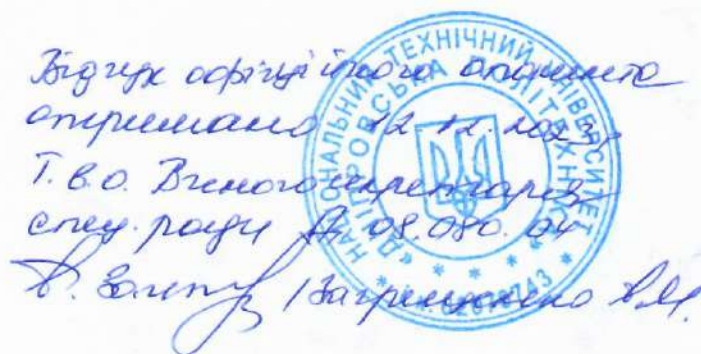 Відгук офіційного опонента
отримано 12.12.2023р
Т.в.о. Вченого секретаря
спец. ради Д 08.080.04
НАЦІОНАЛЬНИЙ ТЕХНІЧНИЙ УНІВЕРСИТЕТ
«ДНІПРОВСЬКА ПОЛІТЕХНІКА»